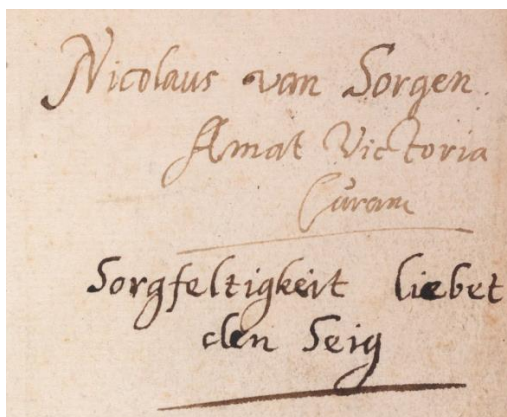 Nicolaus van Sorgen.
Amat Victoria
Curam
Sorgfeltigkeit liebet
den Seig